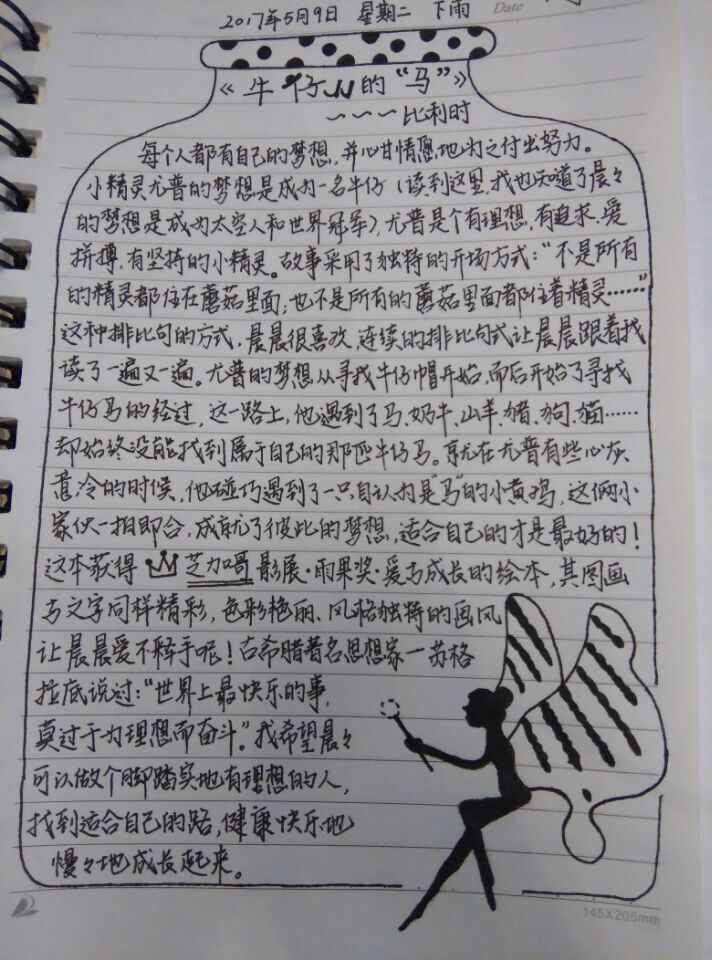 2017年5月9日 星期二 下雨 Date
《牛仔JJ的“马”》
~~~比利时
每个人都有自己的梦想，并心甘情愿地为之付出努力。
小精灵尤普的梦想是成为一名牛仔（读到这里，我也知道了晨々
的梦想是成为太空人和世界冠军），尤普是个有理想，有追求，爱
拼搏，有坚持的小精灵。故事采用了独特的开场方式：“不是所有
的精灵都住在蘑菇里面；也不是所有的蘑菇里面都住着精灵……”
这种排比句的方式，晨晨很喜欢，连续的排比句式让晨晨跟着我
读了一遍又一遍。尤普的梦想从寻找牛仔帽开始，而后开始了寻找
牛仔马的经过，这一路上，他遇到了马、奶牛、山羊、猪、狗、猫……
却始终没能找到属于自己的那匹牛仔马。就在尤普有些心灰
意冷的时候，他碰巧遇到了一只自认为是“马”的小黄鸡，这俩小
家伙一拍即合，成就了彼此的梦想，适合自己的才是最好的！
这本获得 芝加哥影展·雨果奖·爱与成长的绘本，其图画
与文字同样精彩，色彩艳丽、风格独特的画风
让晨晨爱不释手呢！古希腊著名思想家—苏格
拉底说过：“世界上最快乐的事，
莫过于为理想而奋斗。”我希望晨々
可以做个脚踏实地有理想的人，
找到适合自己的路，健康快乐地
慢々地成长起来。
145X205mm